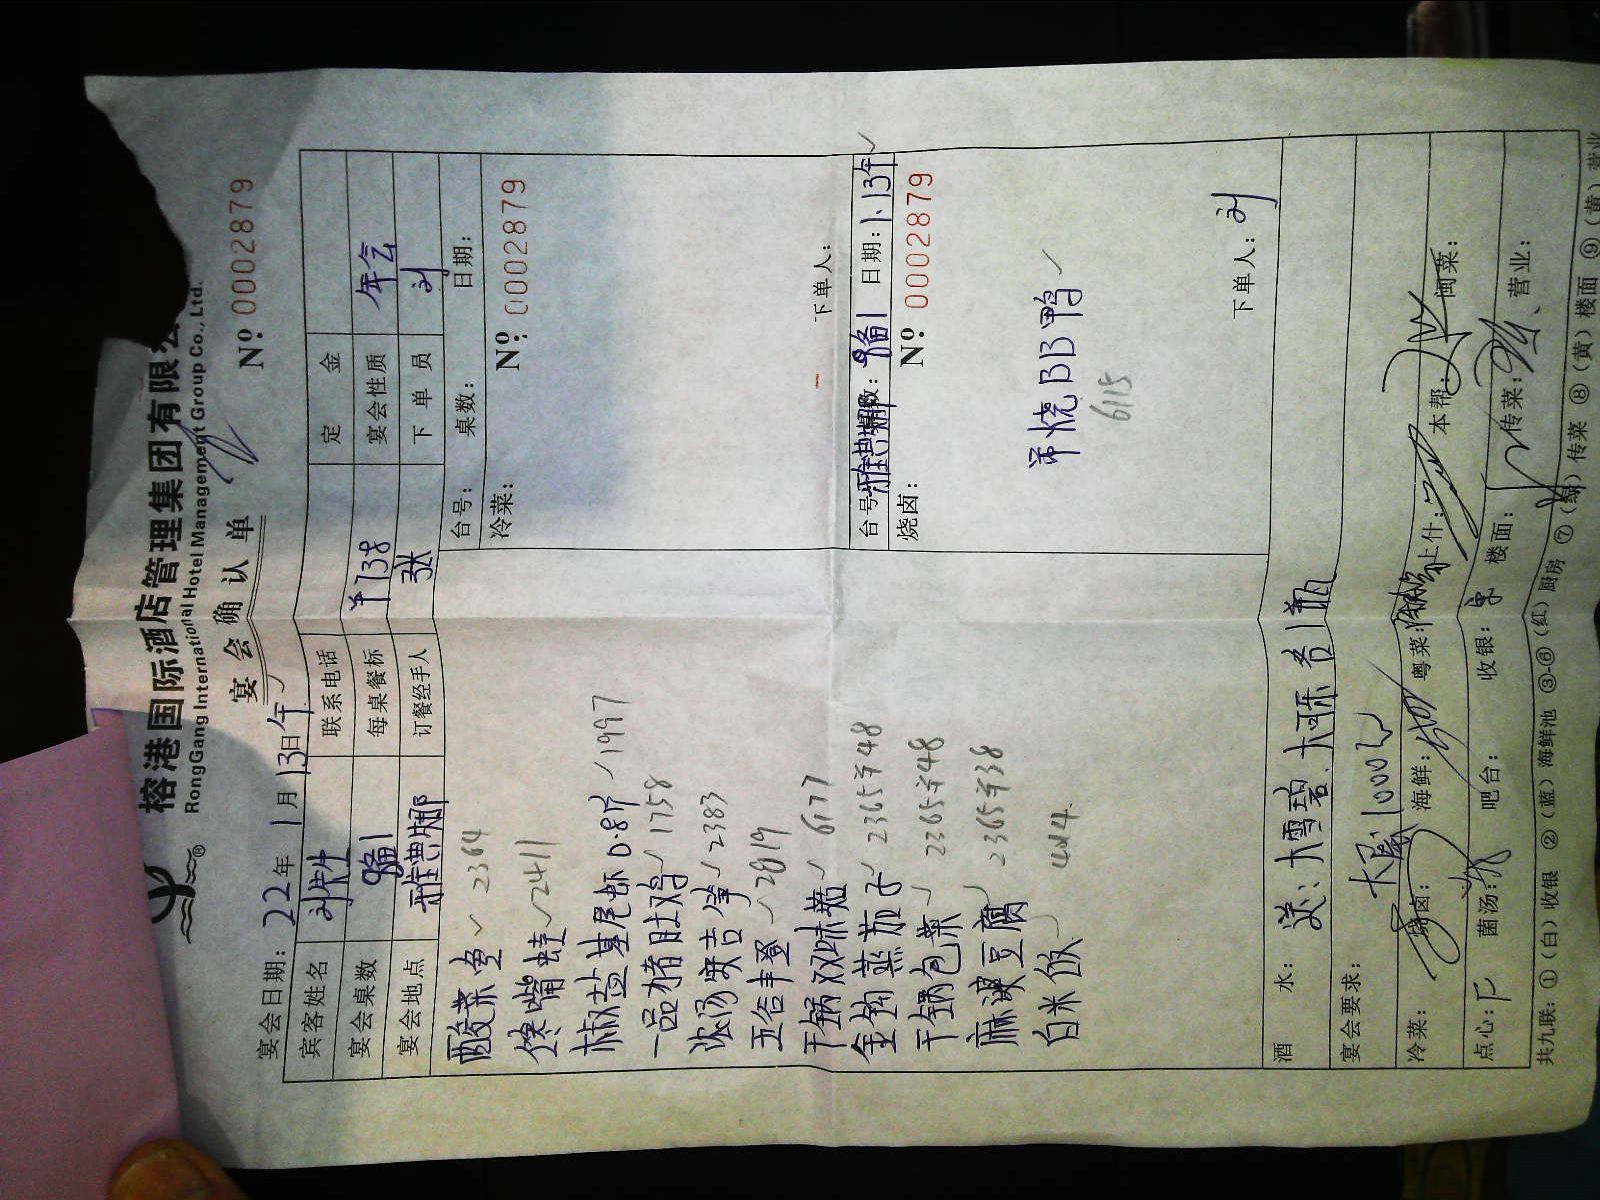 榕港国际酒店管理集团有限公
RongGang International Hotel Management Group Co., Ltd.
宴会确认单
№: 0002879
宴会日期: 22年 1月 13日 午
宾客姓名 联系电话 定金
宴会桌数 9备1 每桌餐标 ¥738 宴会性质 年会
宴会地点 雅典娜 订餐经手人 张 下单员 刘
酸菜鱼 2364
馋嘴蛙 2411
椒盐基尾虾 0.8斤 1997
一品猪肚鸡 1758
2383
五谷丰登 2819
干锅双味菇 6177
金钩蒸茄子 2365 ¥48
干锅包菜 2365 ¥48
麻婆豆腐 2365 ¥38
白米饭
台号: 桌数: 日期:
冷菜: №: 0002879
下单人:
台号: 雅典娜 桌数: 9备1 日期: 1.13午
烧卤: №: 0002879
烧BB鸭
6115
下单人: 刘
酒水: 送: 大雪碧、大可乐各1瓶
宴会要求:
冷菜: 烧卤: 海鲜: 粤菜: 上什: 本帮: 闽菜:
点心: 菌汤: 吧台: 收银: 楼面: 传菜: 营业:
共九联: ①(白)收银 ②(蓝)海鲜池 ③-⑥(红)厨房 ⑦(绿)传菜 ⑧(黄)楼面 ⑨(黄)营业